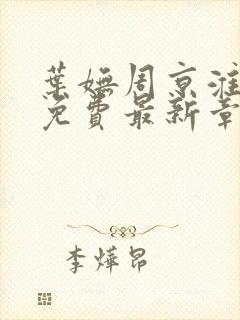 葉嫵周京淮
免費最新章
李燁昂